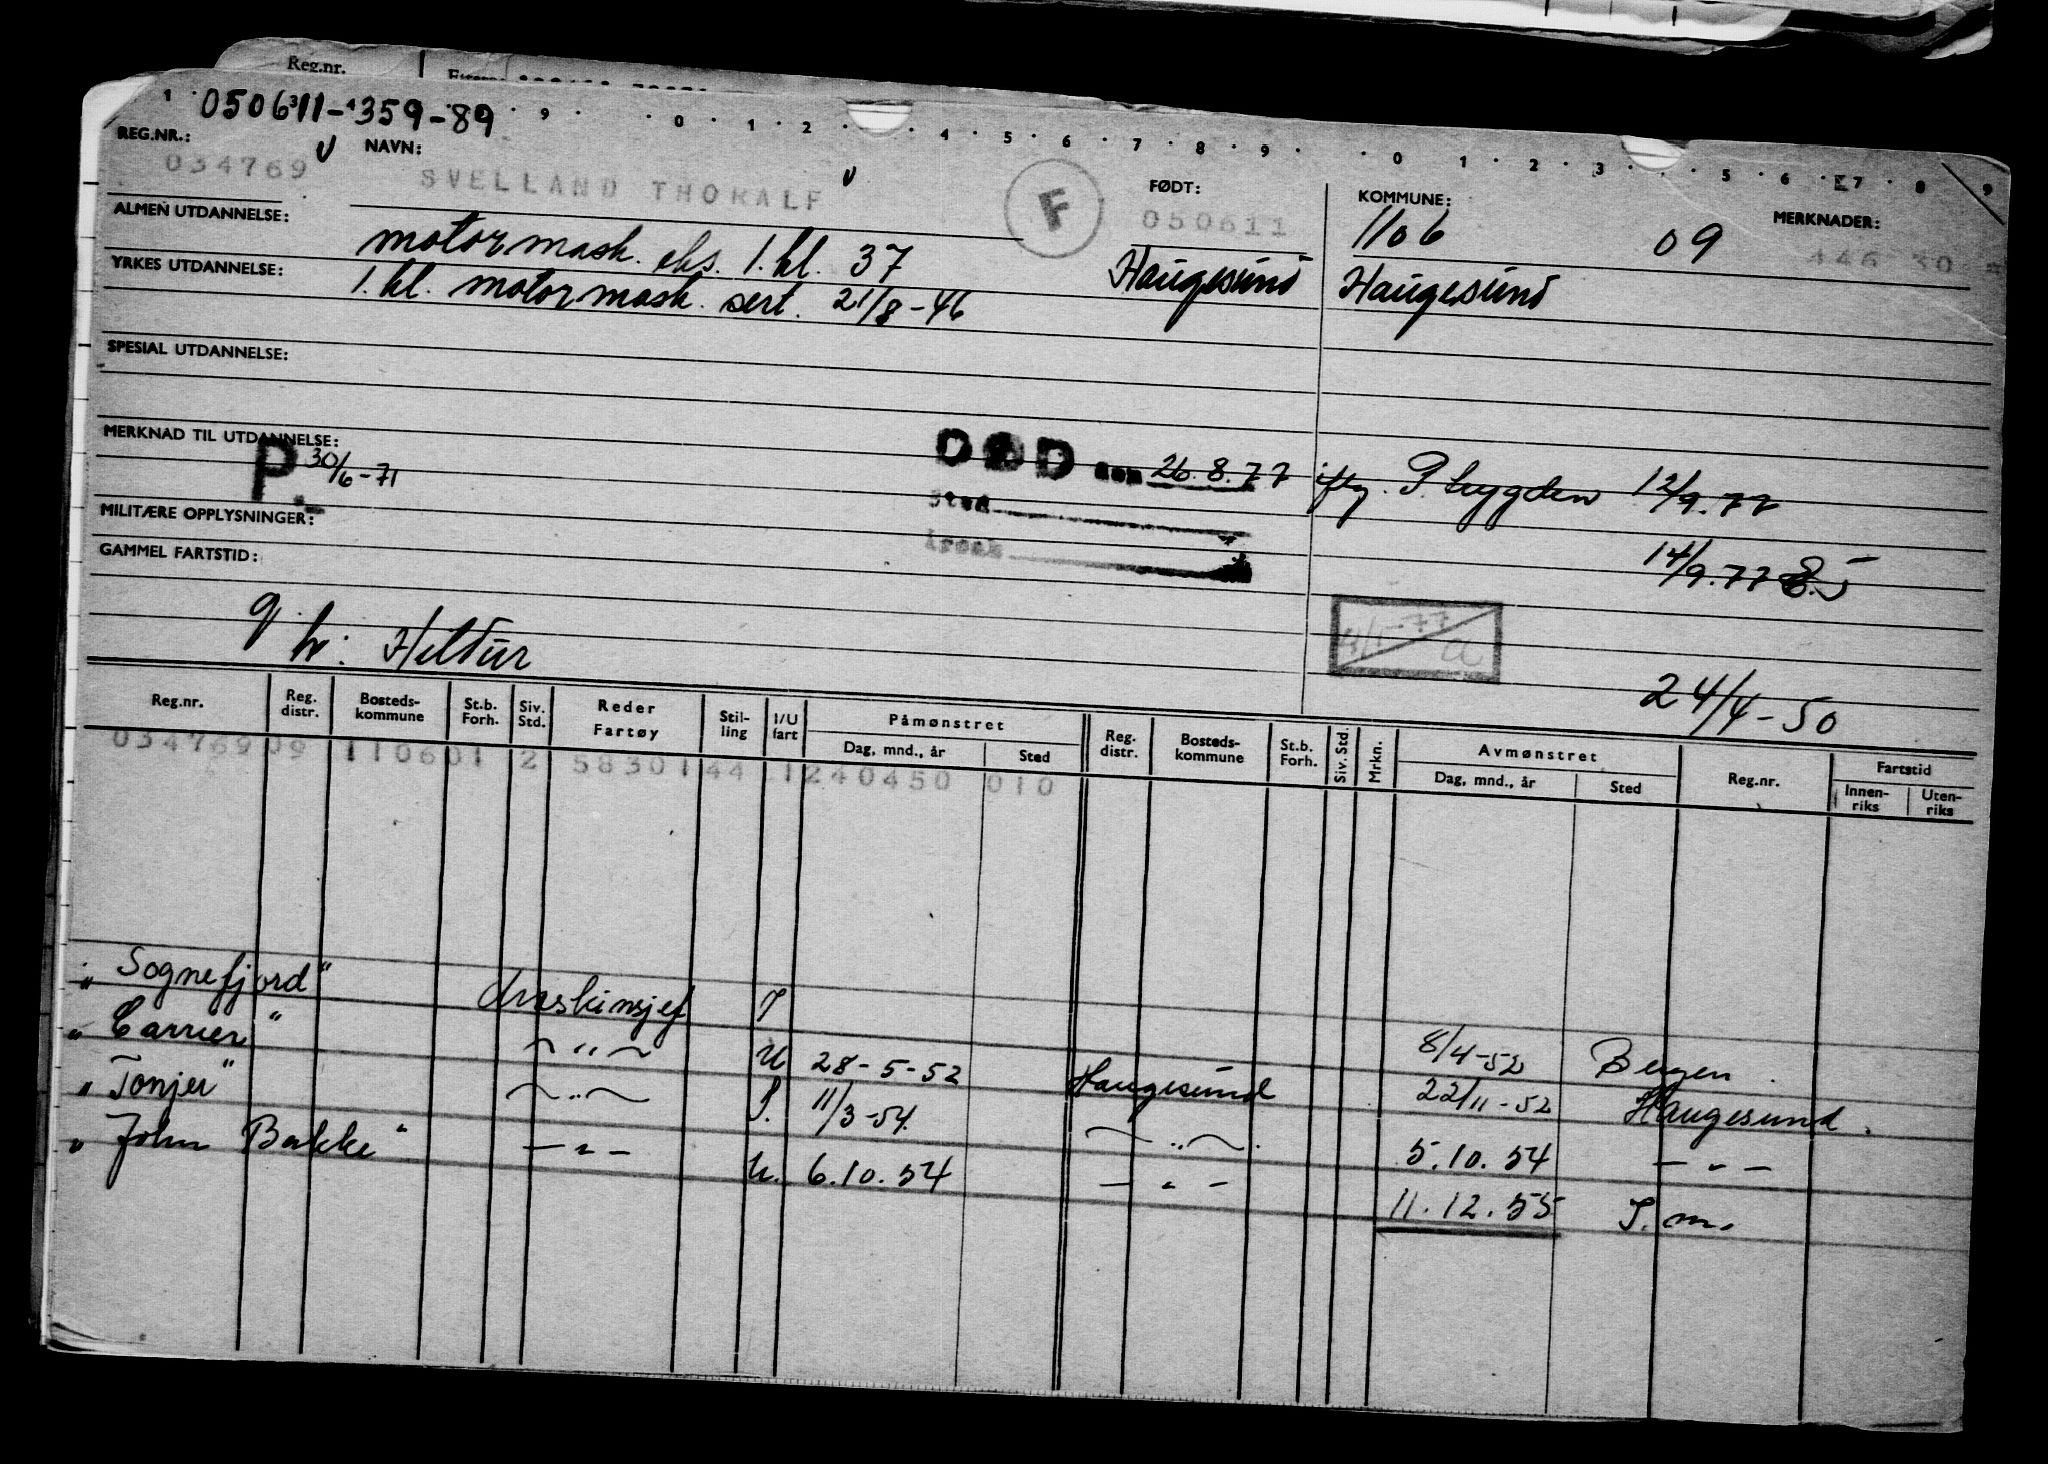 Reg.nr.
1 050611-359-89 9 0 1 2 4 5 6 7 8 9 0 1 2 3 5 6 7 8 9
REG.NR.: NAVN: FØDT: KOMMUNE: MERKNADER:
034769 SVELLAND THORALF F 050611 1106 09 446 30
ALMEN UTDANNELSE: motormask. eks. 1. kl. 37 Haugesund Haugesund
YRKES UTDANNELSE: 1. kl. motormask. sert. 21/8-46
SPESIAL UTDANNELSE:
MERKNAD TIL UTDANNELSE:
P. 30/6-71 DØD den 26.8.77 iflg. P. bygden 12/9.77
MILITÆRE OPPLYSNINGER: Sted
GAMMEL FARTSTID: Årsak 14/9.77
4/1-77 a
hv: Heldur
24/4-50
Reg.nr. Reg. distr. Bosteds-kommune St.b. Forh. Siv. Std. Reder Fartøy Stil-ling I/U fart Påmønstret Dag, mnd., år Sted Reg. distr. Bosteds-kommune St.b. Forh. Siv. Std. Mrkn. Avmønstret Dag, mnd., år Sted Reg.nr. Fartstid Innen-riks Uten-riks
034769 09 1106 01 2 58301 44 1 240450 010
"Sognefjord" maskinsjef I 8/4-52 Bergen
"Carrier" - " - U 28-5-52 Haugesund 22/11-52 Haugesund.
"Tonjer" - " - I. 11/3-54. - " - 5.10.54 - " -
"John Bakke" - " - U. 6.10.54 - " - 11.12.55 S.m.